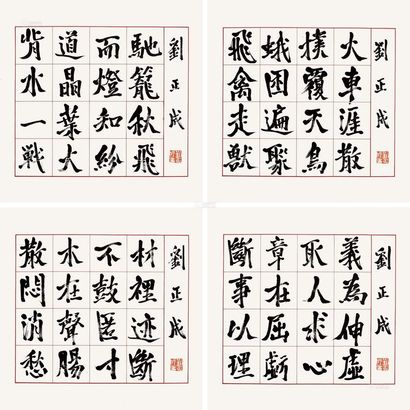 背道而馳
水晶燈籠
一葉知秋
戦火紛飛
劉正成
飛蛾撲火
禽困覆車
走遍天涯
獸聚鳥散
劉正成
散木不材
悶在鼓裡
消聲匿迹
愁腸寸斷
劉正成
斷章取義
事在人為
以屈求伸
理虧心虛
劉正成